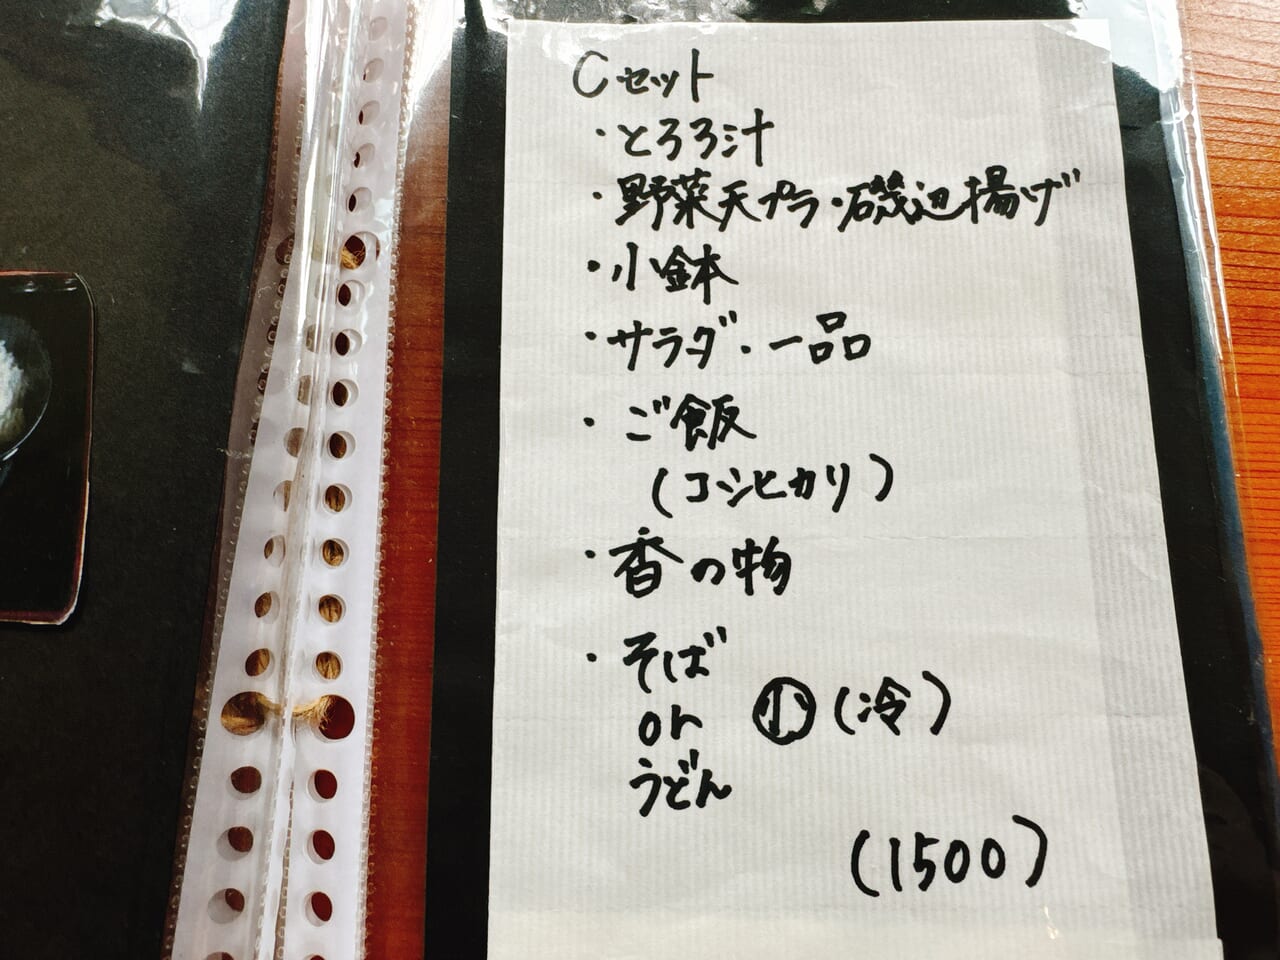 Cセット
・とろろ汁
・野菜天プラ・磯辺揚げ
・小鉢
・サラダ・一品
・ご飯
(コシヒカリ)
・香の物
・そば
or ㊙小(冷)
うどん
(1500)